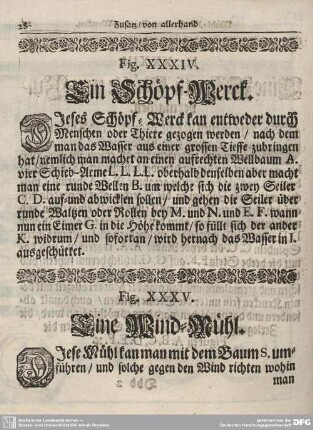 28 Zusatz / von allerhand
Fig. XXXIV.
Ein Schöpf-Werck.
DJeses Schöpf-Werck kan entweder durch
Menschen oder Thiere gezogen werden / nach dem
man das Wasser aus einer grossen Tieffe zubringen
hat / nemlich man machet an einen aufrechten Wellbaum A.
vier Schieb-Arme L. L. L. L. oberhalb denselben aber macht
man eine runde Wellen B. um welche sich die zwey Seiler
C. D. auf-und abwicklen sollen / und gehen die Seiler über
runde Waltzen oder Rollen bey M. und N. und E. F. wann
nun ein Eimer G. in die Höhe kommt / so füllt sich der ander
K. widrum / und sofortan / wird hernach das Wasser in I.
ausgeschüttet.
Fig. XXXV.
Eine Wind-Mühl.
DJese Mühl kan man mit dem Baum S. um-
führen / und solche gegen den Wind richten wohin
man